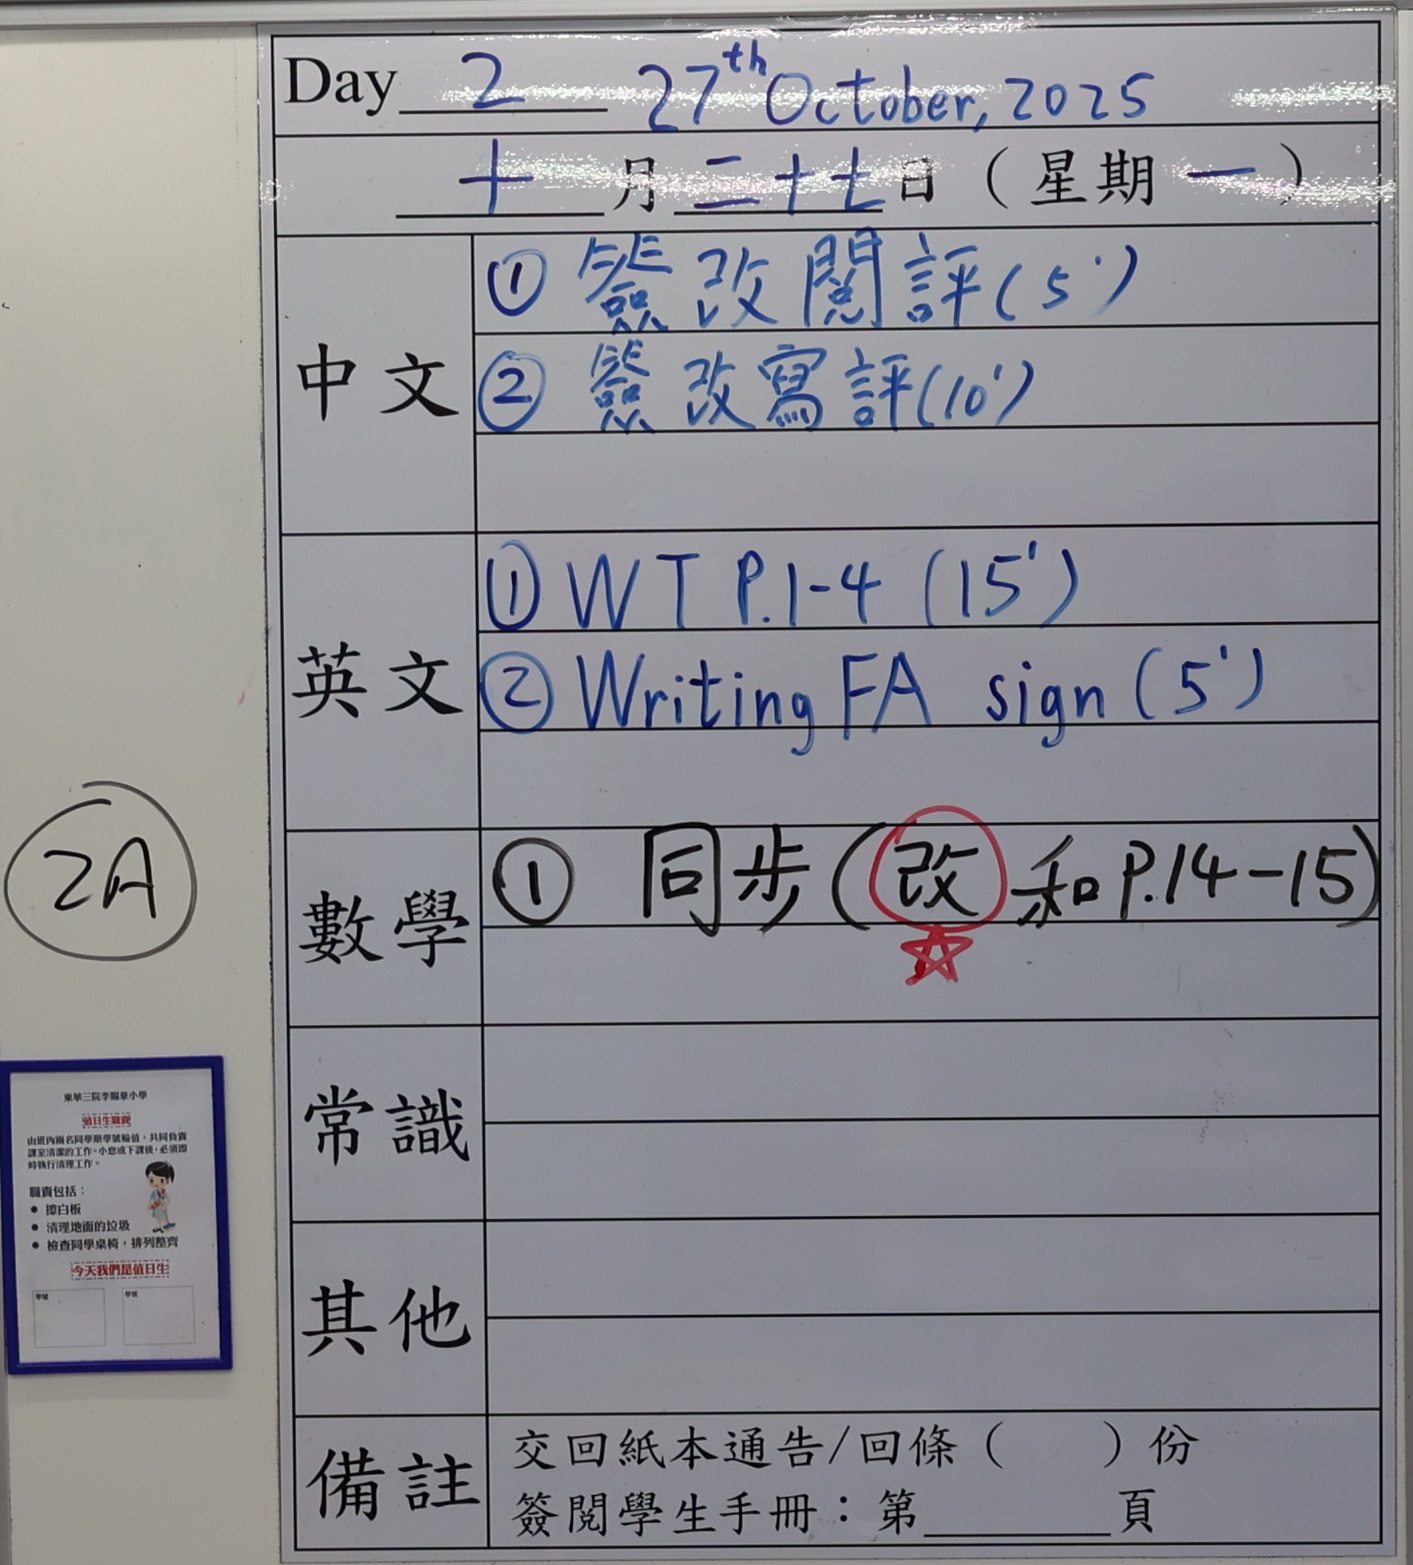 Day 2 27th October, 2025
十月二十七日（星期一）
中文
① 簽改閱評(5')
② 簽改寫評(10')
英文
① WT P.1-4 (15')
② Writing FA sign (5')
2A
數學
① 同步(改和P.14-15)
常識
其他
備註
交回紙本通告/回條（ ）份
簽閱學生手冊：第______頁
東華三院李賜豪小學
值日生職責
由班內兩名同學順學號輪值，共同負責
課室清潔的工作。小息或下課後，必須即
時執行清理工作。
職責包括：
● 擦白板
● 清理地面的垃圾
● 檢查同學桌椅，排列整齊
今天我們是值日生
學號 學號